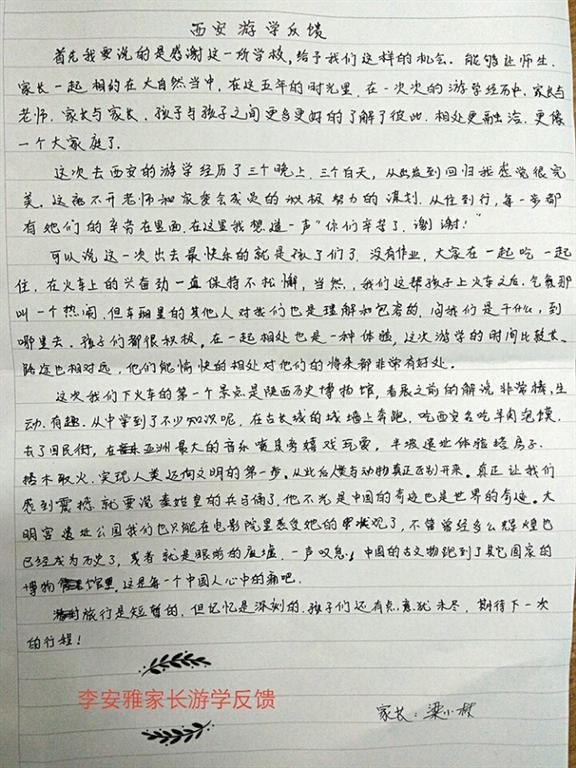 西安游学反馈
首先我要说的是感谢这一所学校,给于我们这样的机会。能够让师生.
家长一起相约在大自然当中.在这五年的时光里.在一次次的游学经历中.家长与
老师.家长与家长.孩子与孩子之间更多更好的了解了彼此.相处更融洽.更像
一个大家庭了.
这次去西安的游学经历了三个晚上.三个白天,从出发到回归我感觉很完
美.这离不开老师和家委会成员的积极努力的谋划.从住到行,每一步都
有她们的辛苦在里面.在这里我想道一声"你们辛苦了.谢谢!"
可以说这一次出去最快乐的就是孩子们了.没有作业,大家在一起吃一起
住.在火车上的兴奋劲一直保持不松懈,当然,我们这帮孩子上火车之后.气氛那
叫一个热闹.但车厢里的其他人对我们也是理解和包容的.问我们是干什么,到
哪里去.孩子们都很积极.在一起相处也是一种体验,这次游学的时间比较长.
路途也相对远,他们能愉快的相处对他们的将来都非常有好处.
这次我们下火车的第一个景点是陕西历史博物馆,看展之前的解说非常棒.生
动.有趣.从中学到了不少知识呢,在古长城的城墙上奔跑.吃西安名吃羊肉泡馍.
去了回民街,在亚洲最大的音乐喷泉旁嬉戏玩耍,半坡遗址体验搭房子.
搭木取火.实现人类迈向文明的第一步.从此后人与动物真正区别开来。真正让我们
感到震撼就要说秦始皇的兵马俑了,他不光是中国的奇迹也是世界的奇迹.大
明宫遗址公园我们也只能在电影院里感受她的壮观了,不管曾经多么辉煌也
已经成为历史了,或者就是眼前的废墟.一声叹息!中国的古文物跑到了其它国家的
博物馆里.这是每一个中国人心中的痛吧.
旅行是短暂的,但记忆是深刻的.孩子们还有点意犹未尽,期待下一次
的行程!
李安雅家长游学反馈
家长:梁小